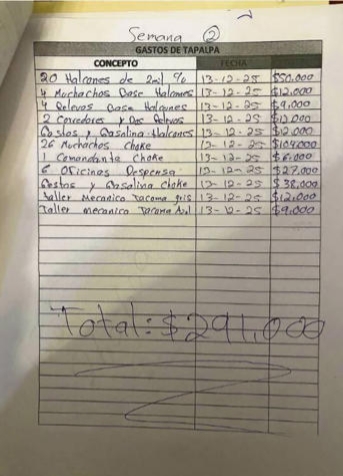 Semana 2
GASTOS DE TAPALPA
CONCEPTO FECHA
20 Halcones de 2mil % 13-12-25 $50,000
4 Muchachos Base Halcones 13-12-25 $12,000
4 Relevos Base Halcones 13-12-25 $9,000
2 Corredores y Dos Relevos 13-12-25 $12,000
Gastos y Gasolina Halcones 13-12-25 $12,000
26 Muchachos choke 13-12-25 $104,000
1 Comandante Choke 13-12-25 $6,000
6 Oficinas Despensa 13-12-25 $27,000
Gastos y Gasolina choke 13-12-25 $38,000
Taller Mecanico Tacoma gris 13-12-25 $12,000
Taller mecanico Tacoma Azul 13-12-25 $9,000
Total: $291,000